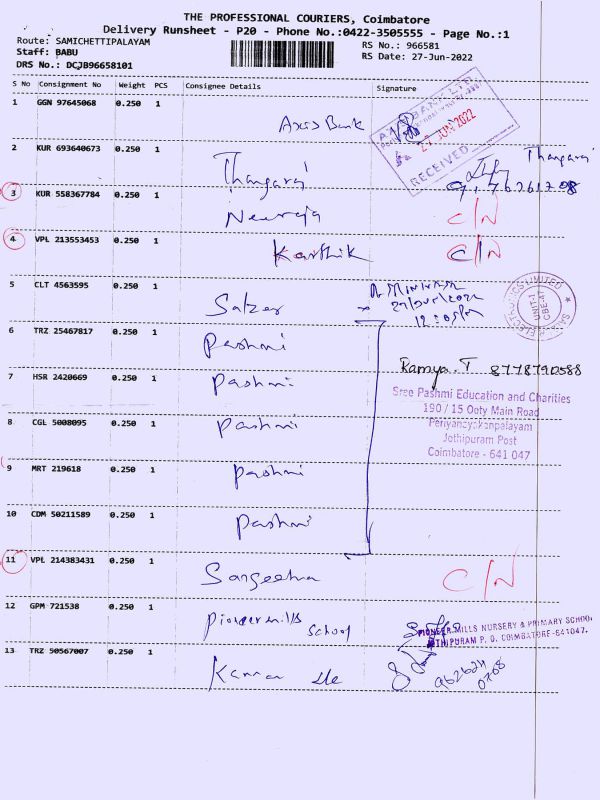 THE PROFESSIONAL COURIERS, Coimbatore
Delivery Runsheet - P20 - Phone No.:0422-3505555 - Page No.:1
Route: SAMICHETTIPALAYAM
RS No.: 966581
Staff: BABU
RS Date: 27-Jun-2022
DRS No.: DCJB96658101
S No Consignment No Weight PCS Consignee Details Signature
1 GGN 97645068 0.250 1 Axis Bank
AXIS BANK LTD
27 JUN 2022
RECEIVED
2 KUR 693640673 0.250 1 Thangaraj Thangaraj
3 KUR 558367784 0.250 1 Neeraja C/N
4 VPL 213553453 0.250 1 Karthik C/N
5 CLT 4563595 0.250 1 Salzer
UNIT-1
CBE-47
6 TRZ 25467817 0.250 1 Pashmi
Ramya.T 8778790588
7 HSR 2420669 0.250 1 Pashmi
Sree Pashmi Education and Charities
190 / 15 Ooty Main Road
8 CGL 5008095 0.250 1 Pashmi
Periyanaickenpalayam
Jothipuram Post
Coimbatore - 641 047
9 MRT 219618 0.250 1 Pashmi
10 CDM 50211589 0.250 1 Pashmi
11 VPL 214383431 0.250 1 Sangeetha C/N
12 GPM 721538 0.250 1 Pioneer mills School
PIONEER MILLS NURSERY & PRIMARY SCHOOL
JOTHIPURAM P. O. COIMBATORE-641047.
13 TRZ 50567007 0.250 1 Kannan